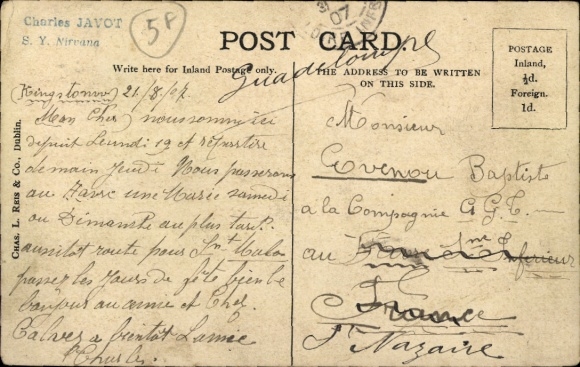 Charles JAVOT
S. Y. Nirvana
5F
07
POST CARD.
Guadeloupe
Write here for Inland Postage only.
THE ADDRESS TO BE WRITTEN
ON THIS SIDE.
POSTAGE
Inland,
½d.
Foreign.
1d.
CHAS. L. REIS & CO., DUBLIN.
Kingstown 21/8/07
Mon Cher nous sommes ici
depuit Leundi 19 et
demain Jeudi Nous passerons
au Havre une Marée samedi
ou Dimanche au plus tard.
aussitot route pour Snt Malo
passer les Jours de fête
au et Chez
Calvez a bientot Lamie
Charles
Monsieur
Evenou Baptiste
a la Compagnie G. G. T.
au
Inferieur
France
St Nazaire